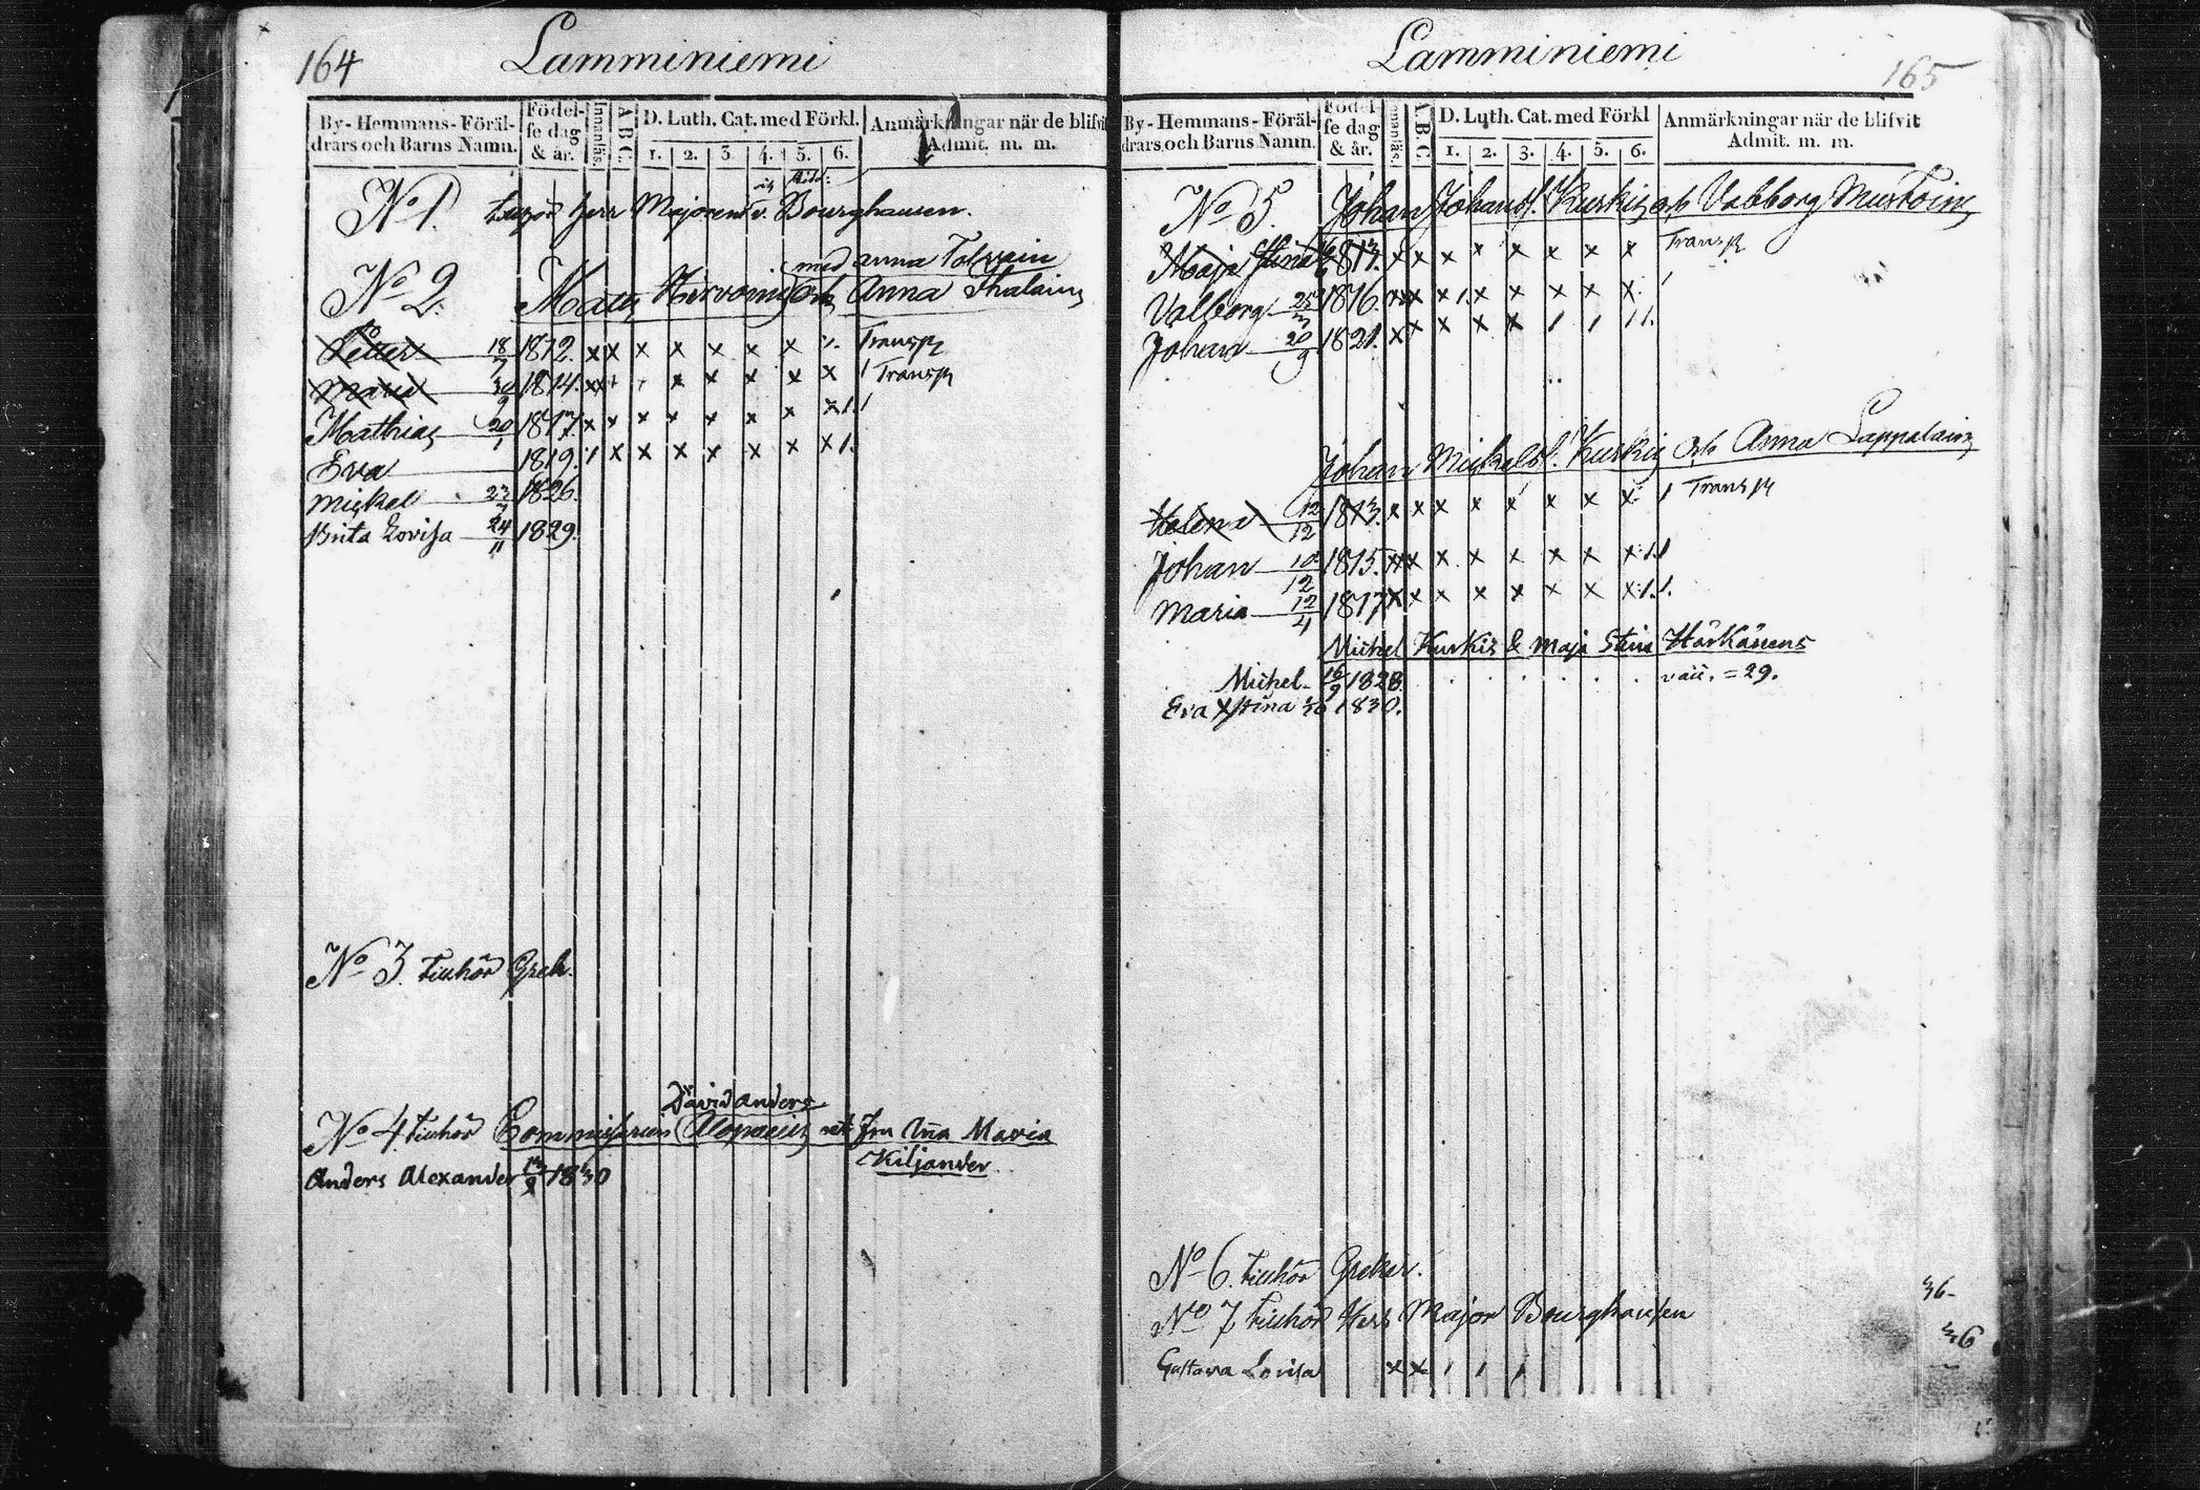 164
Lamminiemi
By- Hemmans- Föräl-
drars och Barns Namn.
Födel-
se dag
& år.
Innanläs.
A B C.
D. Luth. Cat. med Förkl.
1. 2. 3. 4. 5. 6.
Anmärkningar när de blifvit
Admit. m. m.
No 1. Herr Majoren v. Bourghausen.
med Anna Tolvain
No 2. Mats och Anna
Petter 18/7 1812. x x x x x x x Transp
Maria 1814. x x x x x x Transp
Mathias 20/1 1817. x x x x x x x
Eva 1819. x x x x x x x
Mickel 1826.
Brita Lovisa 24/11 1829.
No 3. tillhör Grek.
David Anders
No 4. tillhör Commissarien Alopaeus och Fru Anna Maria
Kiljander
Anders Alexander 1830
Lamminiemi
165
By- Hemmans- Föräl-
drars och Barns Namn.
Födel-
se dag
& år.
Innanläs.
A.B.C.
D. Luth. Cat. med Förkl
1. 2. 3. 4. 5. 6.
Anmärkningar när de blifvit
Admit. m. m.
No 5. Johan Johansf. Kurkis och Valborg
Maja Stina 1813. x x x x x x x x Transp
Valborg 1816. x x x x x x x x
Johan 20/9 1821. x x x x x
Johan Mickelsf. Kurkis och Anna Lappalain
Helena 12/12 1813. x x x x x x x x Transp
Johan 10/12 1815. x x x x x x x x
Maria 12/4 1817 x x x x x x x x
Michel Kurkis & Maja Stina Härkänens
Michel 16/9 1828. = 29.
Eva Xstina 1830.
No 6. tillhör Greker.
No 7 tillhör Herr Major Bourghausen
Gustava Lovisa x x
36